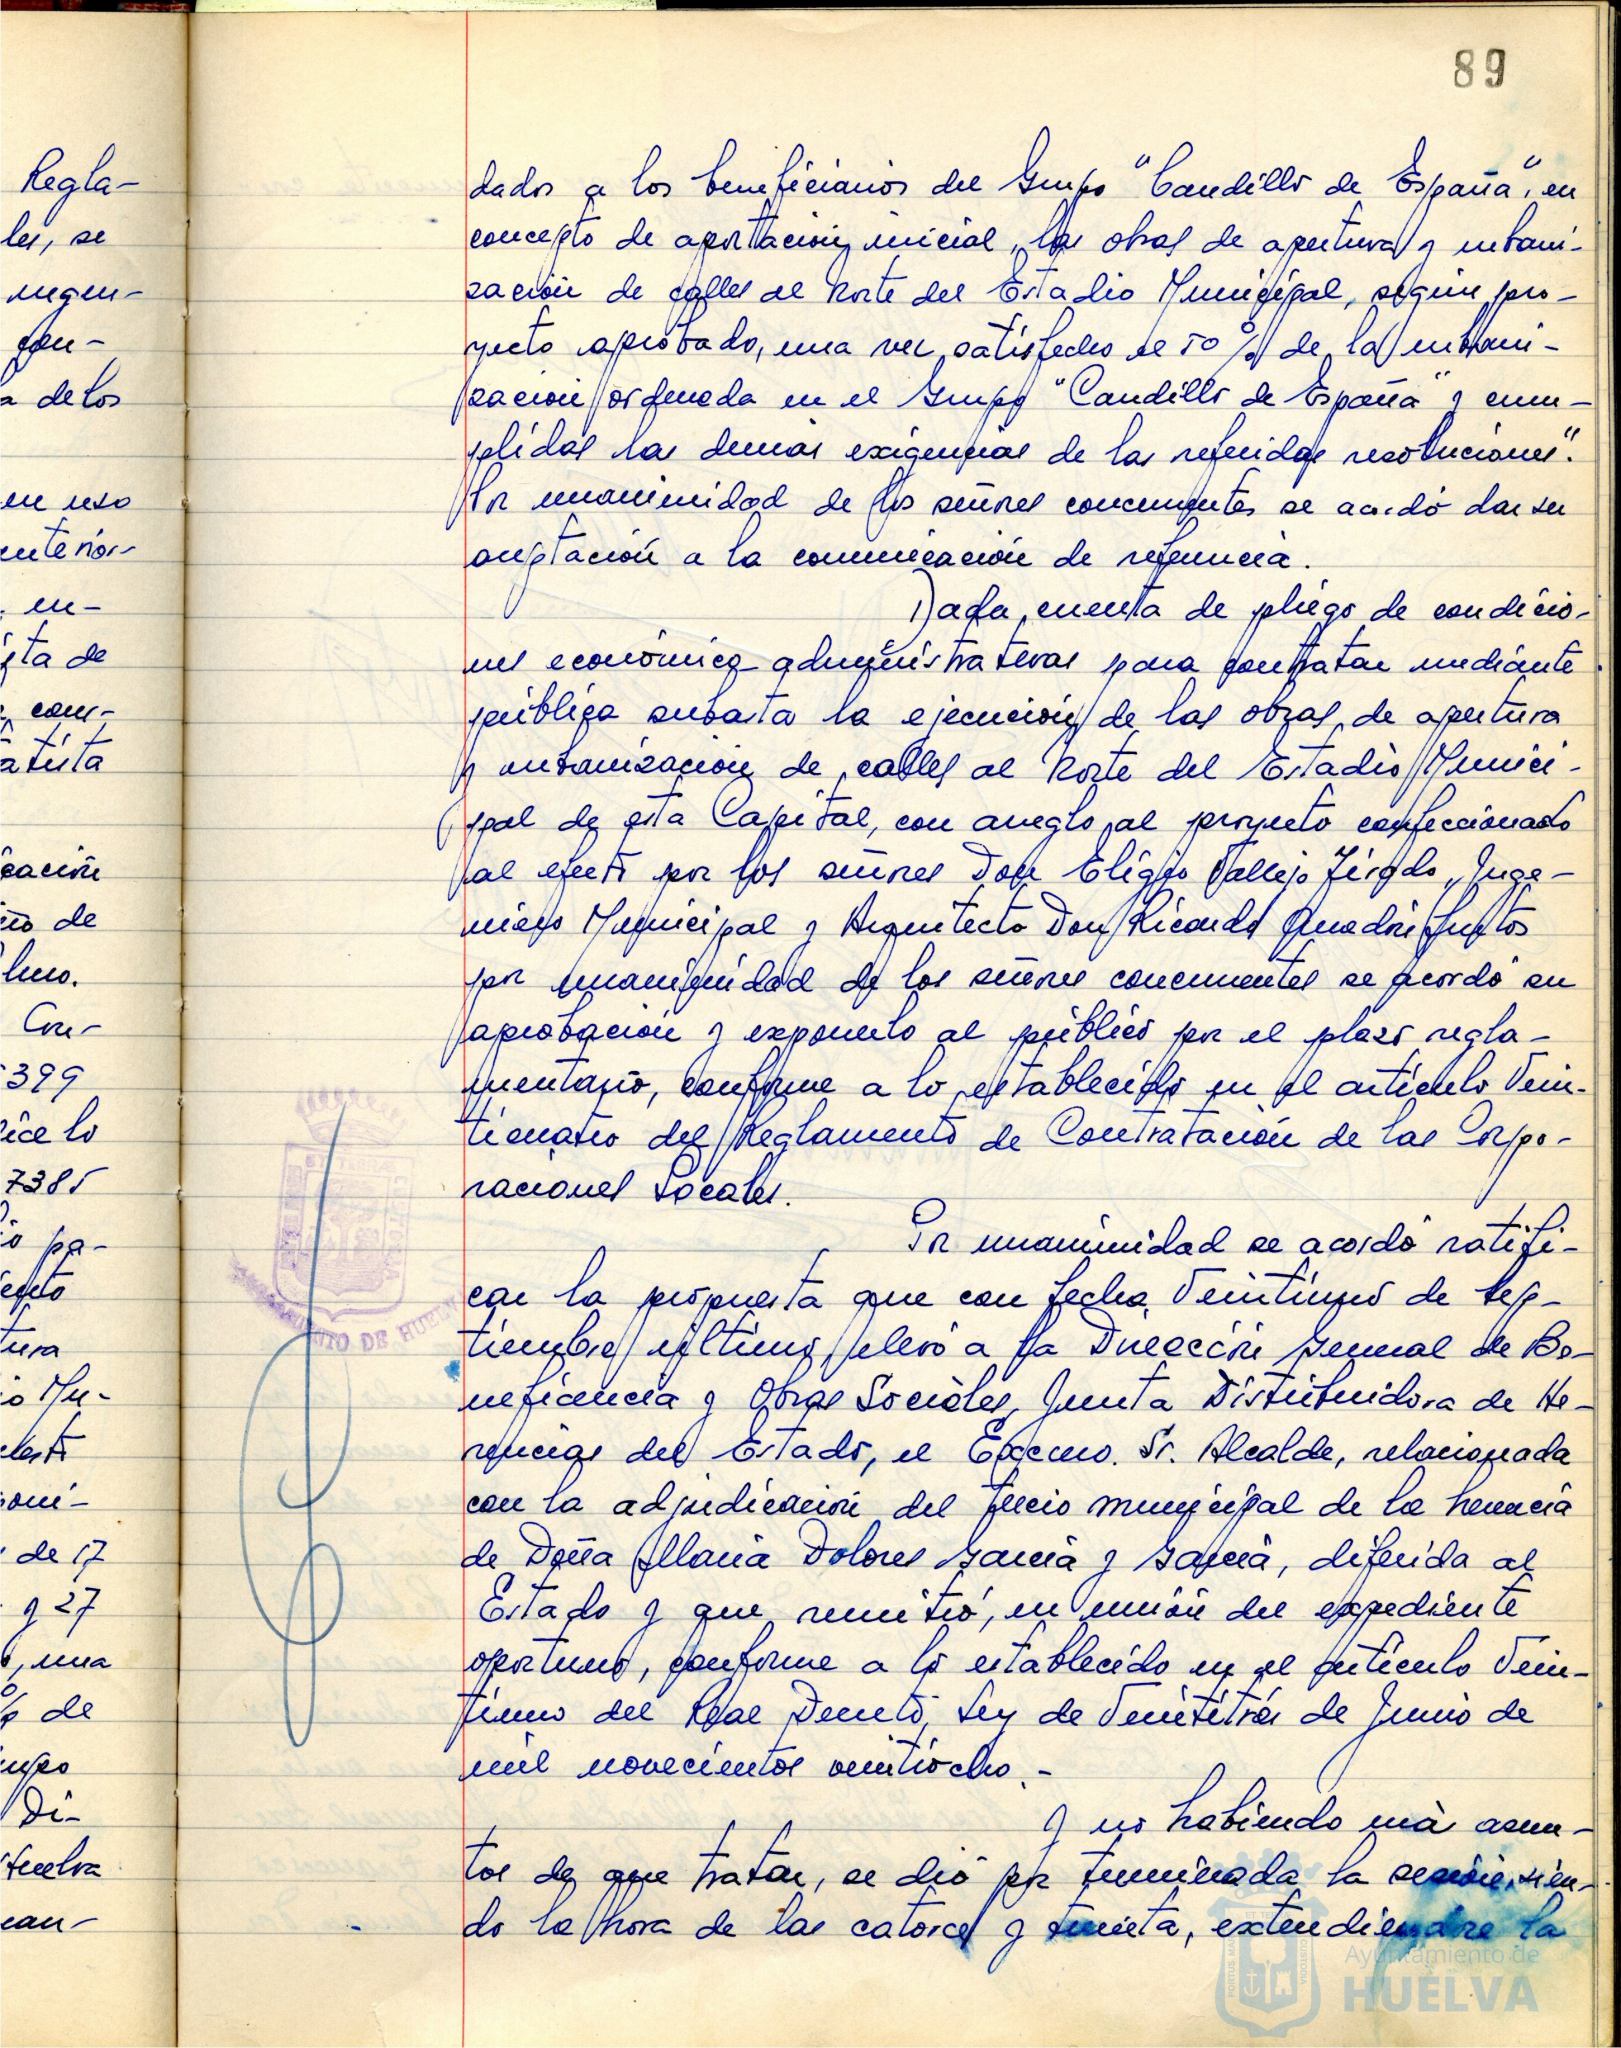 89
dados a los beneficiarios del Grupo "Caudillo de España", en
concepto de aportacion inicial, las obras de apertura y urbani-
zación de calles al Norte del Estadio Municipal, según pro-
yecto aprobado, una vez satisfecho el 50 % de la urbani-
zación ordenada en el Grupo "Caudillo de España" y cum-
plidas las demás exigencias de las referidas resoluciones".
Por unanimidad de los señores concurrentes se acordó dar su
aceptación a la comunicación de referencia.
Dada cuenta de pliego de condicio-
nes económico-administrativas para contratar mediante
pública subasta la ejecución de las obras de apertura
y urbanización de calles al Norte del Estadio Munici-
pal de esta Capital, con arreglo al proyecto confeccionado
al efecto por los señores Don Eligio Vallejo Tirado, Inge-
niero Municipal y Arquitecto Don Ricardo
por unanimidad de los señores concurrentes se acordó su
aprobación y exponerlo al público por el plazo regla-
mentario, conforme a lo establecido en el artículo Vein-
ticuatro del Reglamento de Contratación de las Corpo-
raciones Locales.
Por unanimidad se acordó ratifi-
car la propuesta que con fecha Veintiuno de Sep-
tiembre último, elevó a la Dirección General de Be-
neficencia y Obras Sociales, Junta Distribuidora de He-
rencias del Estado, el Excmo. Sr. Alcalde, relacionada
con la adjudicación del tercio municipal de la herencia
de Doña María Dolores García y García, diferida al
Estado y que remitió, en unión del expediente
oportuno, conforme a lo establecido en el artículo Vein-
tiuno del Real Decreto Ley de Veintitrés de Junio de
mil novecientos veintiocho.-
Y no habiendo más asun-
tos de que tratar, se dió por terminada la sesión, sien-
do la hora de las catorce y treinta, extendiendose la
Ayuntamiento de
HUELVA
Regla-
les, se
urgen-
a de los
en uso
anterior-
en-
cación
Con-
399
7385
pa-
o Mu-
de 17
y 27
, una
% de
Di-